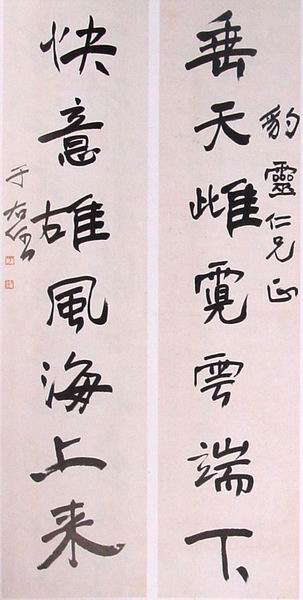 豹靈仁兄正
垂天雌霓雲端下
快意雄風海上来
于右任